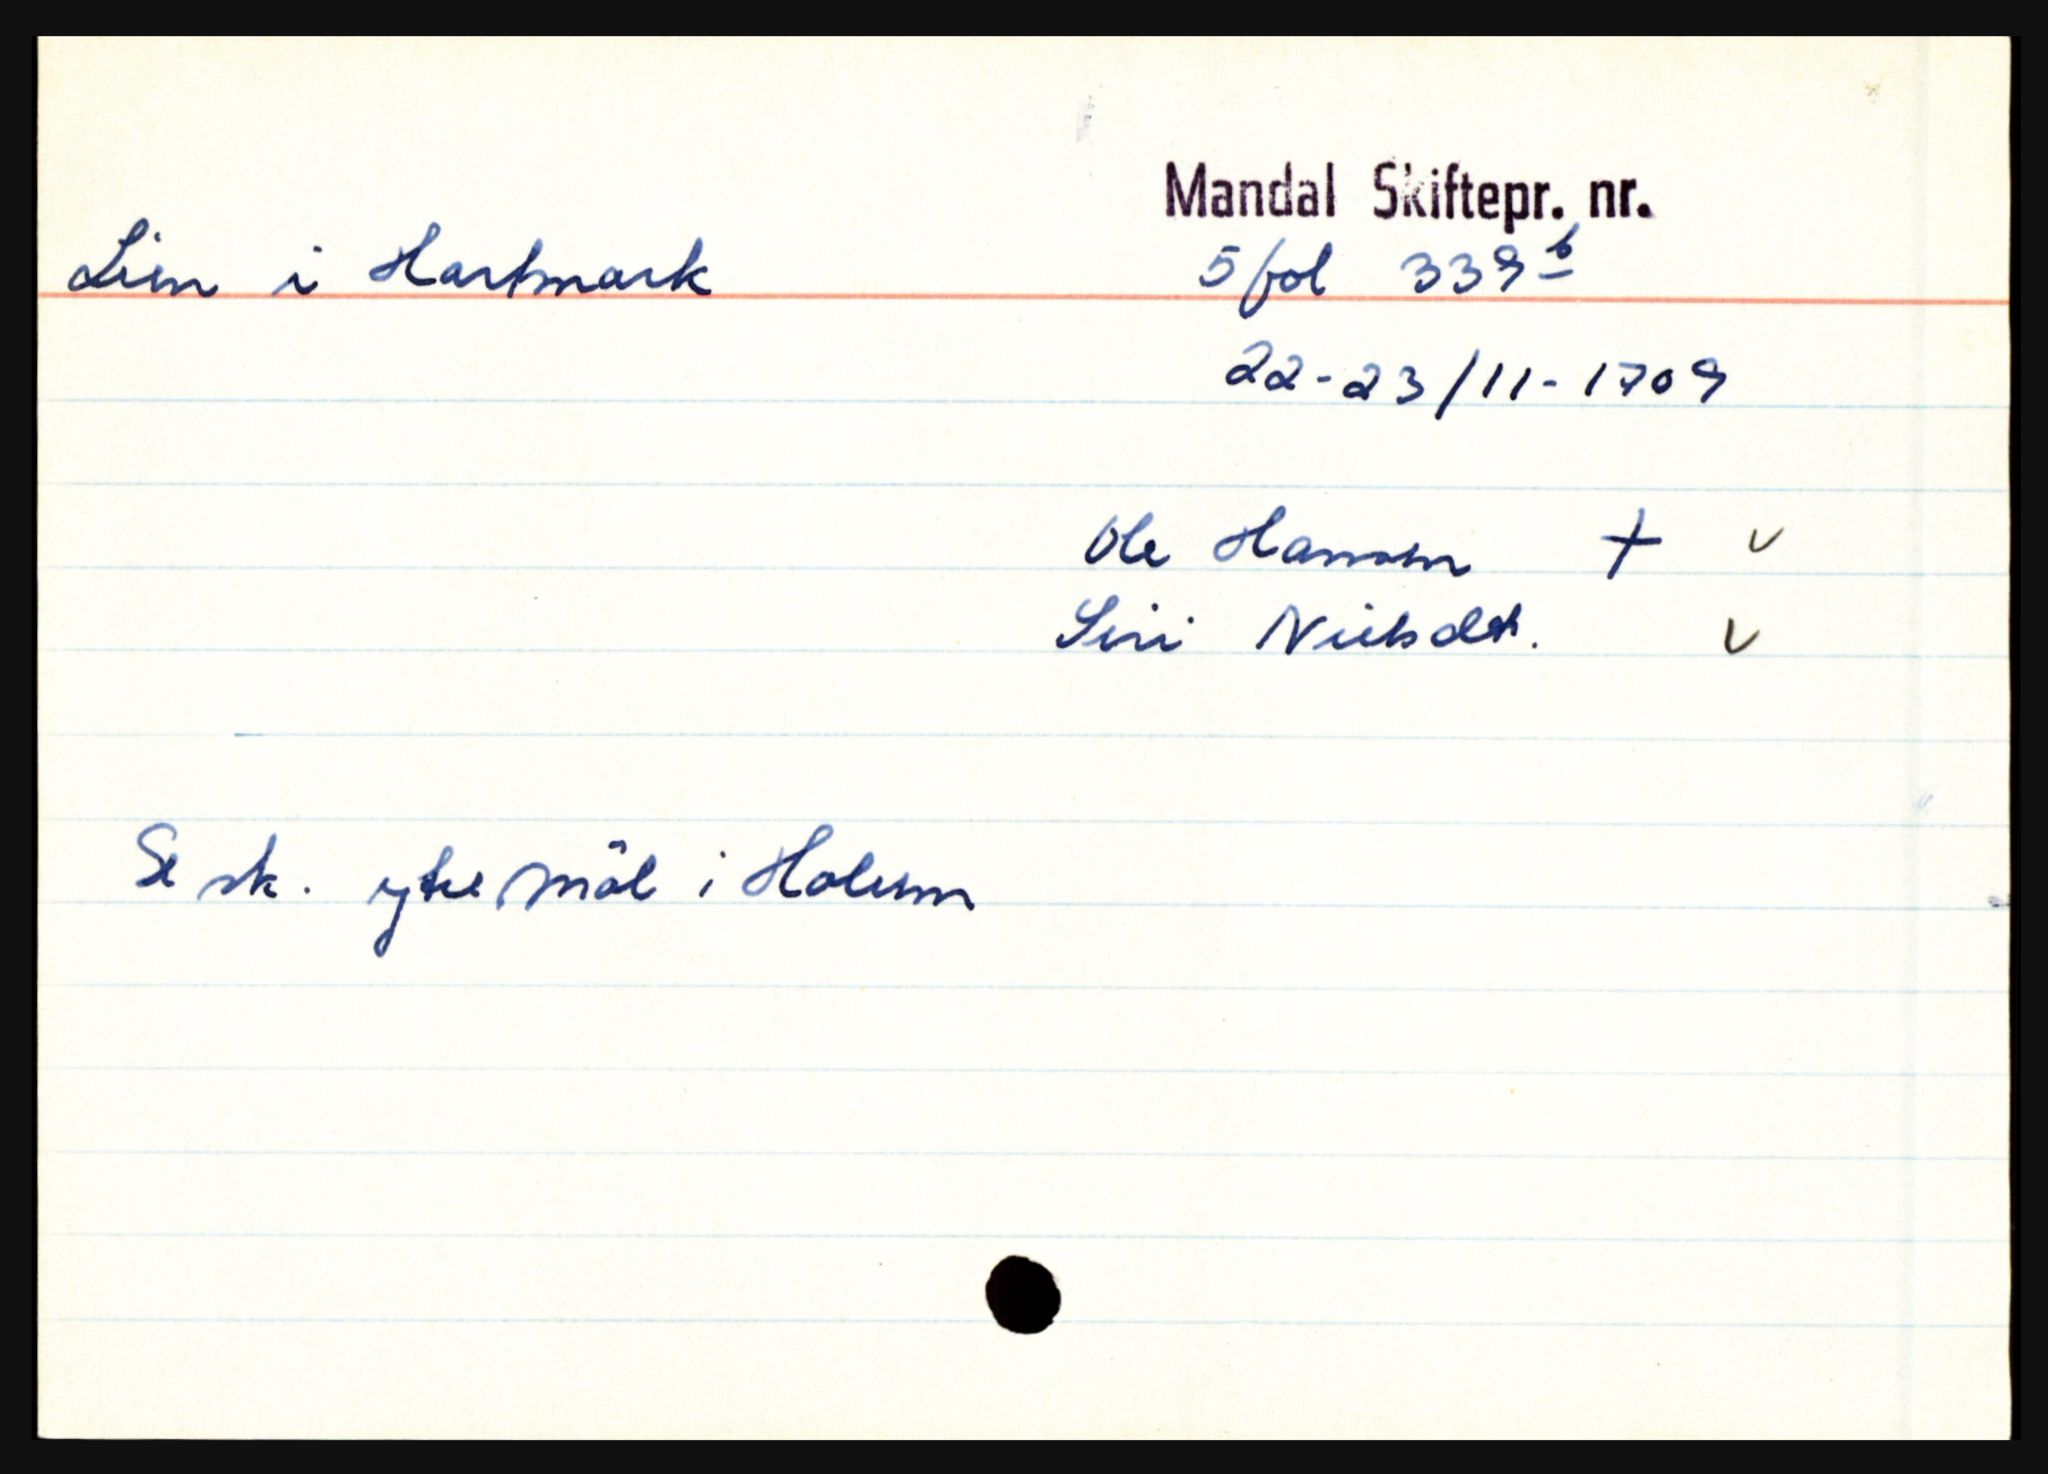 Mandal Skiftepr. nr.
Lien i Hartmark 5 fol 339 b
22-23/11-1709
Ole Hansen † v
Siri Nielsdtr. v
Se sk. ytre Møl i Holum